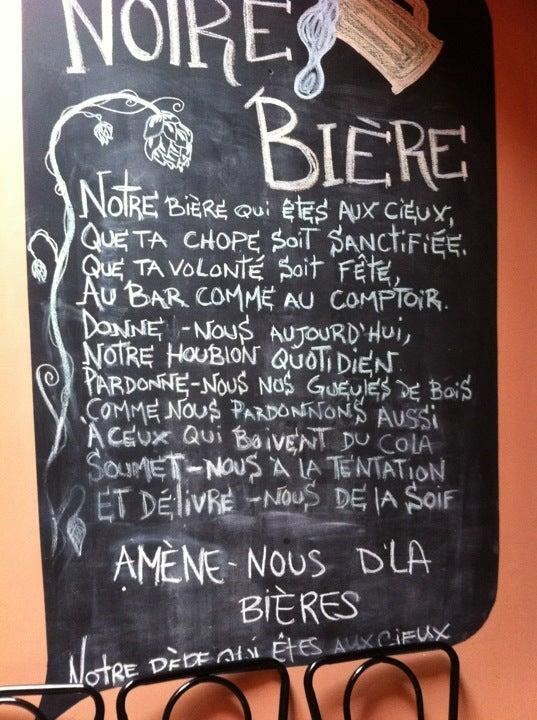 NOTRE
BIÈRE
NOTRE BIÈRE QUI ÊTES AUX CIEUX,
QUE TA CHOPE SOIT SANCTIFIÉE.
QUE TA VOLONTÉ SOIT FÊTE,
AU BAR COMME AU COMPTOIR.
DONNE-NOUS AUJOURD'HUI,
NOTRE HOUBLON QUOTIDIEN.
PARDONNE-NOUS NOS GUEULES DE BOIS
COMME NOUS PARDONNONS AUSSI
À CEUX QUI BOIVENT DU COLA
SOUMET-NOUS À LA TENTATION
ET DÉLIVRE-NOUS DE LA SOIF
AMÈNE-NOUS D'LA
BIÈRES
NOTRE PÈRE QUI ÊTES AUX CIEUX